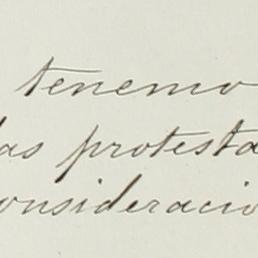 tenemo
las protesta
onsideracio